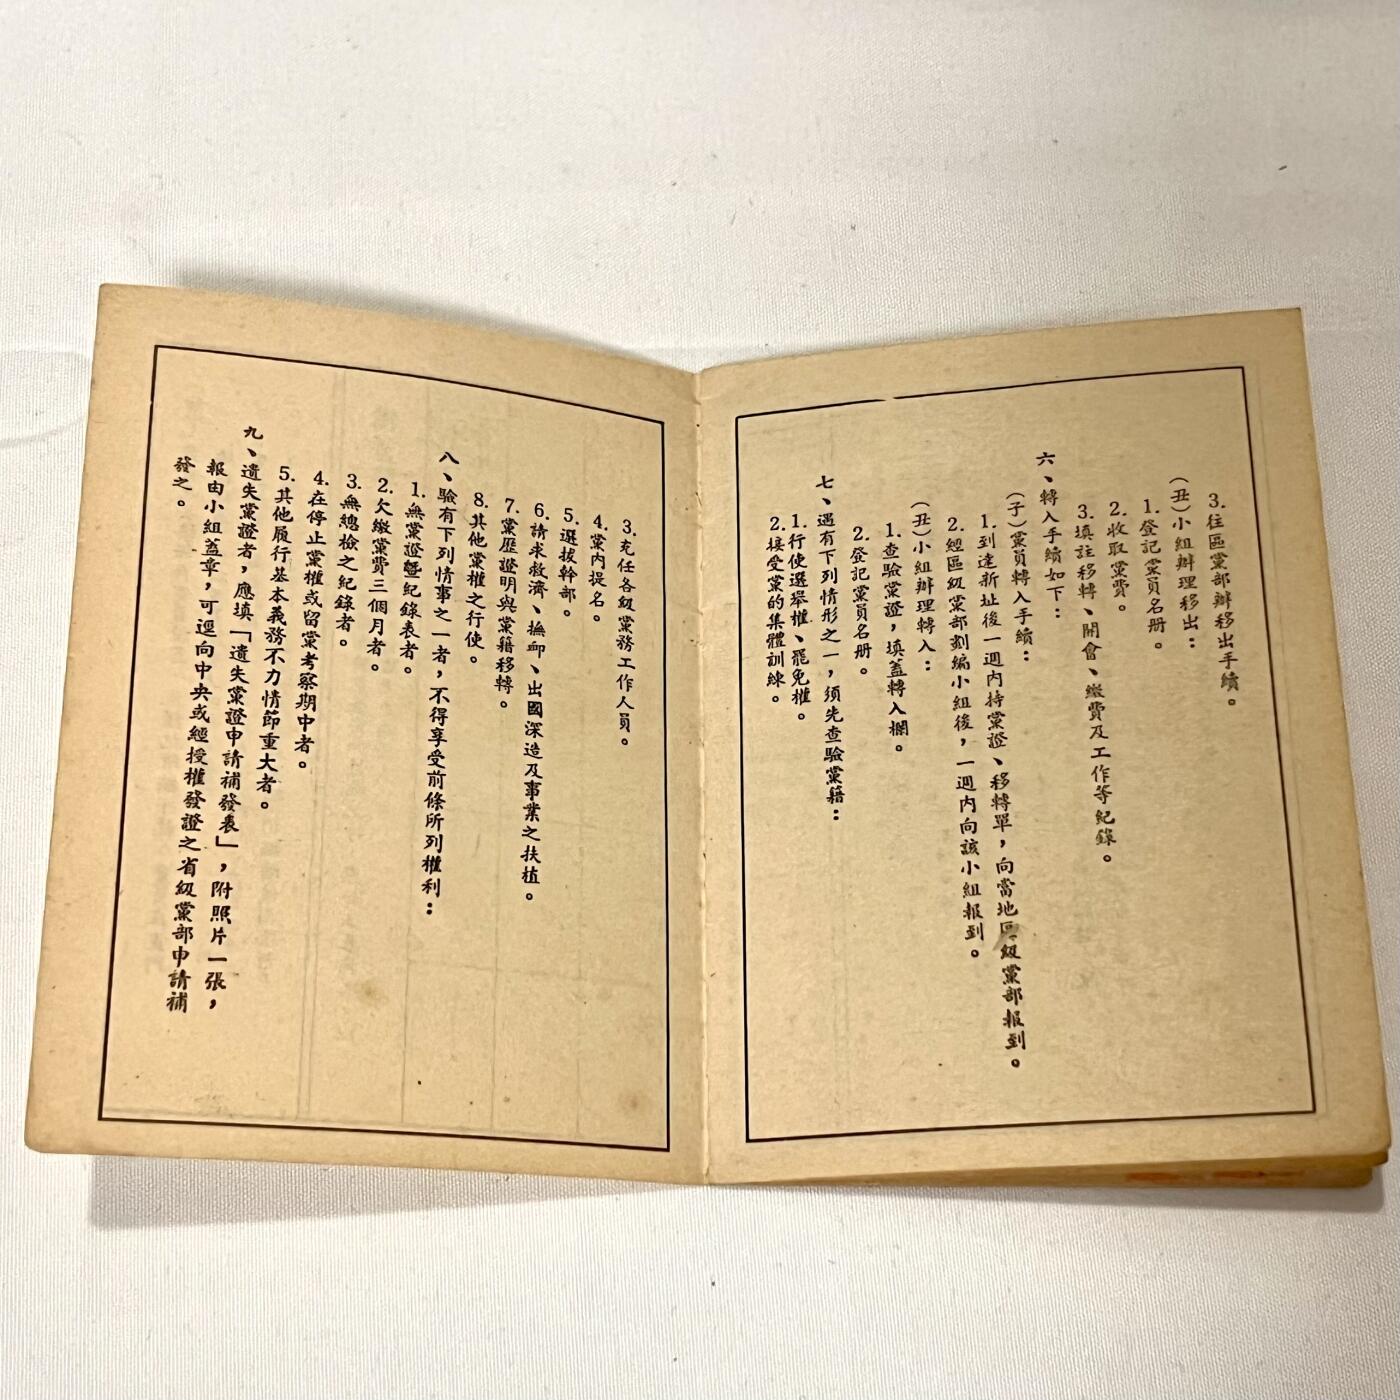 3.往區黨部辦移出手續。
(丑)小組辦理移出：
1.登記黨員名册。
2.收取黨費。
3.填註移轉、開會、繳費及工作等紀錄。
六、轉入手續如下：
(子)黨員轉入手續：
1.到達新址後一週內持黨證、移轉單，向當地區級黨部報到。
2.經區級黨部劃編小組後，一週內向該小組報到。
(丑)小組辦理轉入：
1.查驗黨證，填蓋轉入欄。
2.登記黨員名册。
七、遇有下列情形之一，須先查驗黨籍：
1.行使選舉權、罷免權。
2.接受黨的集體訓練。
3.充任各級黨務工作人員。
4.黨內提名。
5.選拔幹部。
6.請求救濟、撫卹、出國深造及事業之扶植。
7.黨歷證明與黨籍移轉。
8.其他黨權之行使。
八、驗有下列情事之一者，不得享受前條所列權利：
1.無黨證暨紀錄表者。
2.欠繳黨費三個月者。
3.無總檢之紀錄者。
4.在停止黨權或留黨考察期中者。
5.其他履行基本義務不力情節重大者。
九、遺失黨證者，應填「遺失黨證申請補發表」，附照片一張，
報由小組蓋章，可逕向中央或經授權發證之省級黨部申請補
發之。